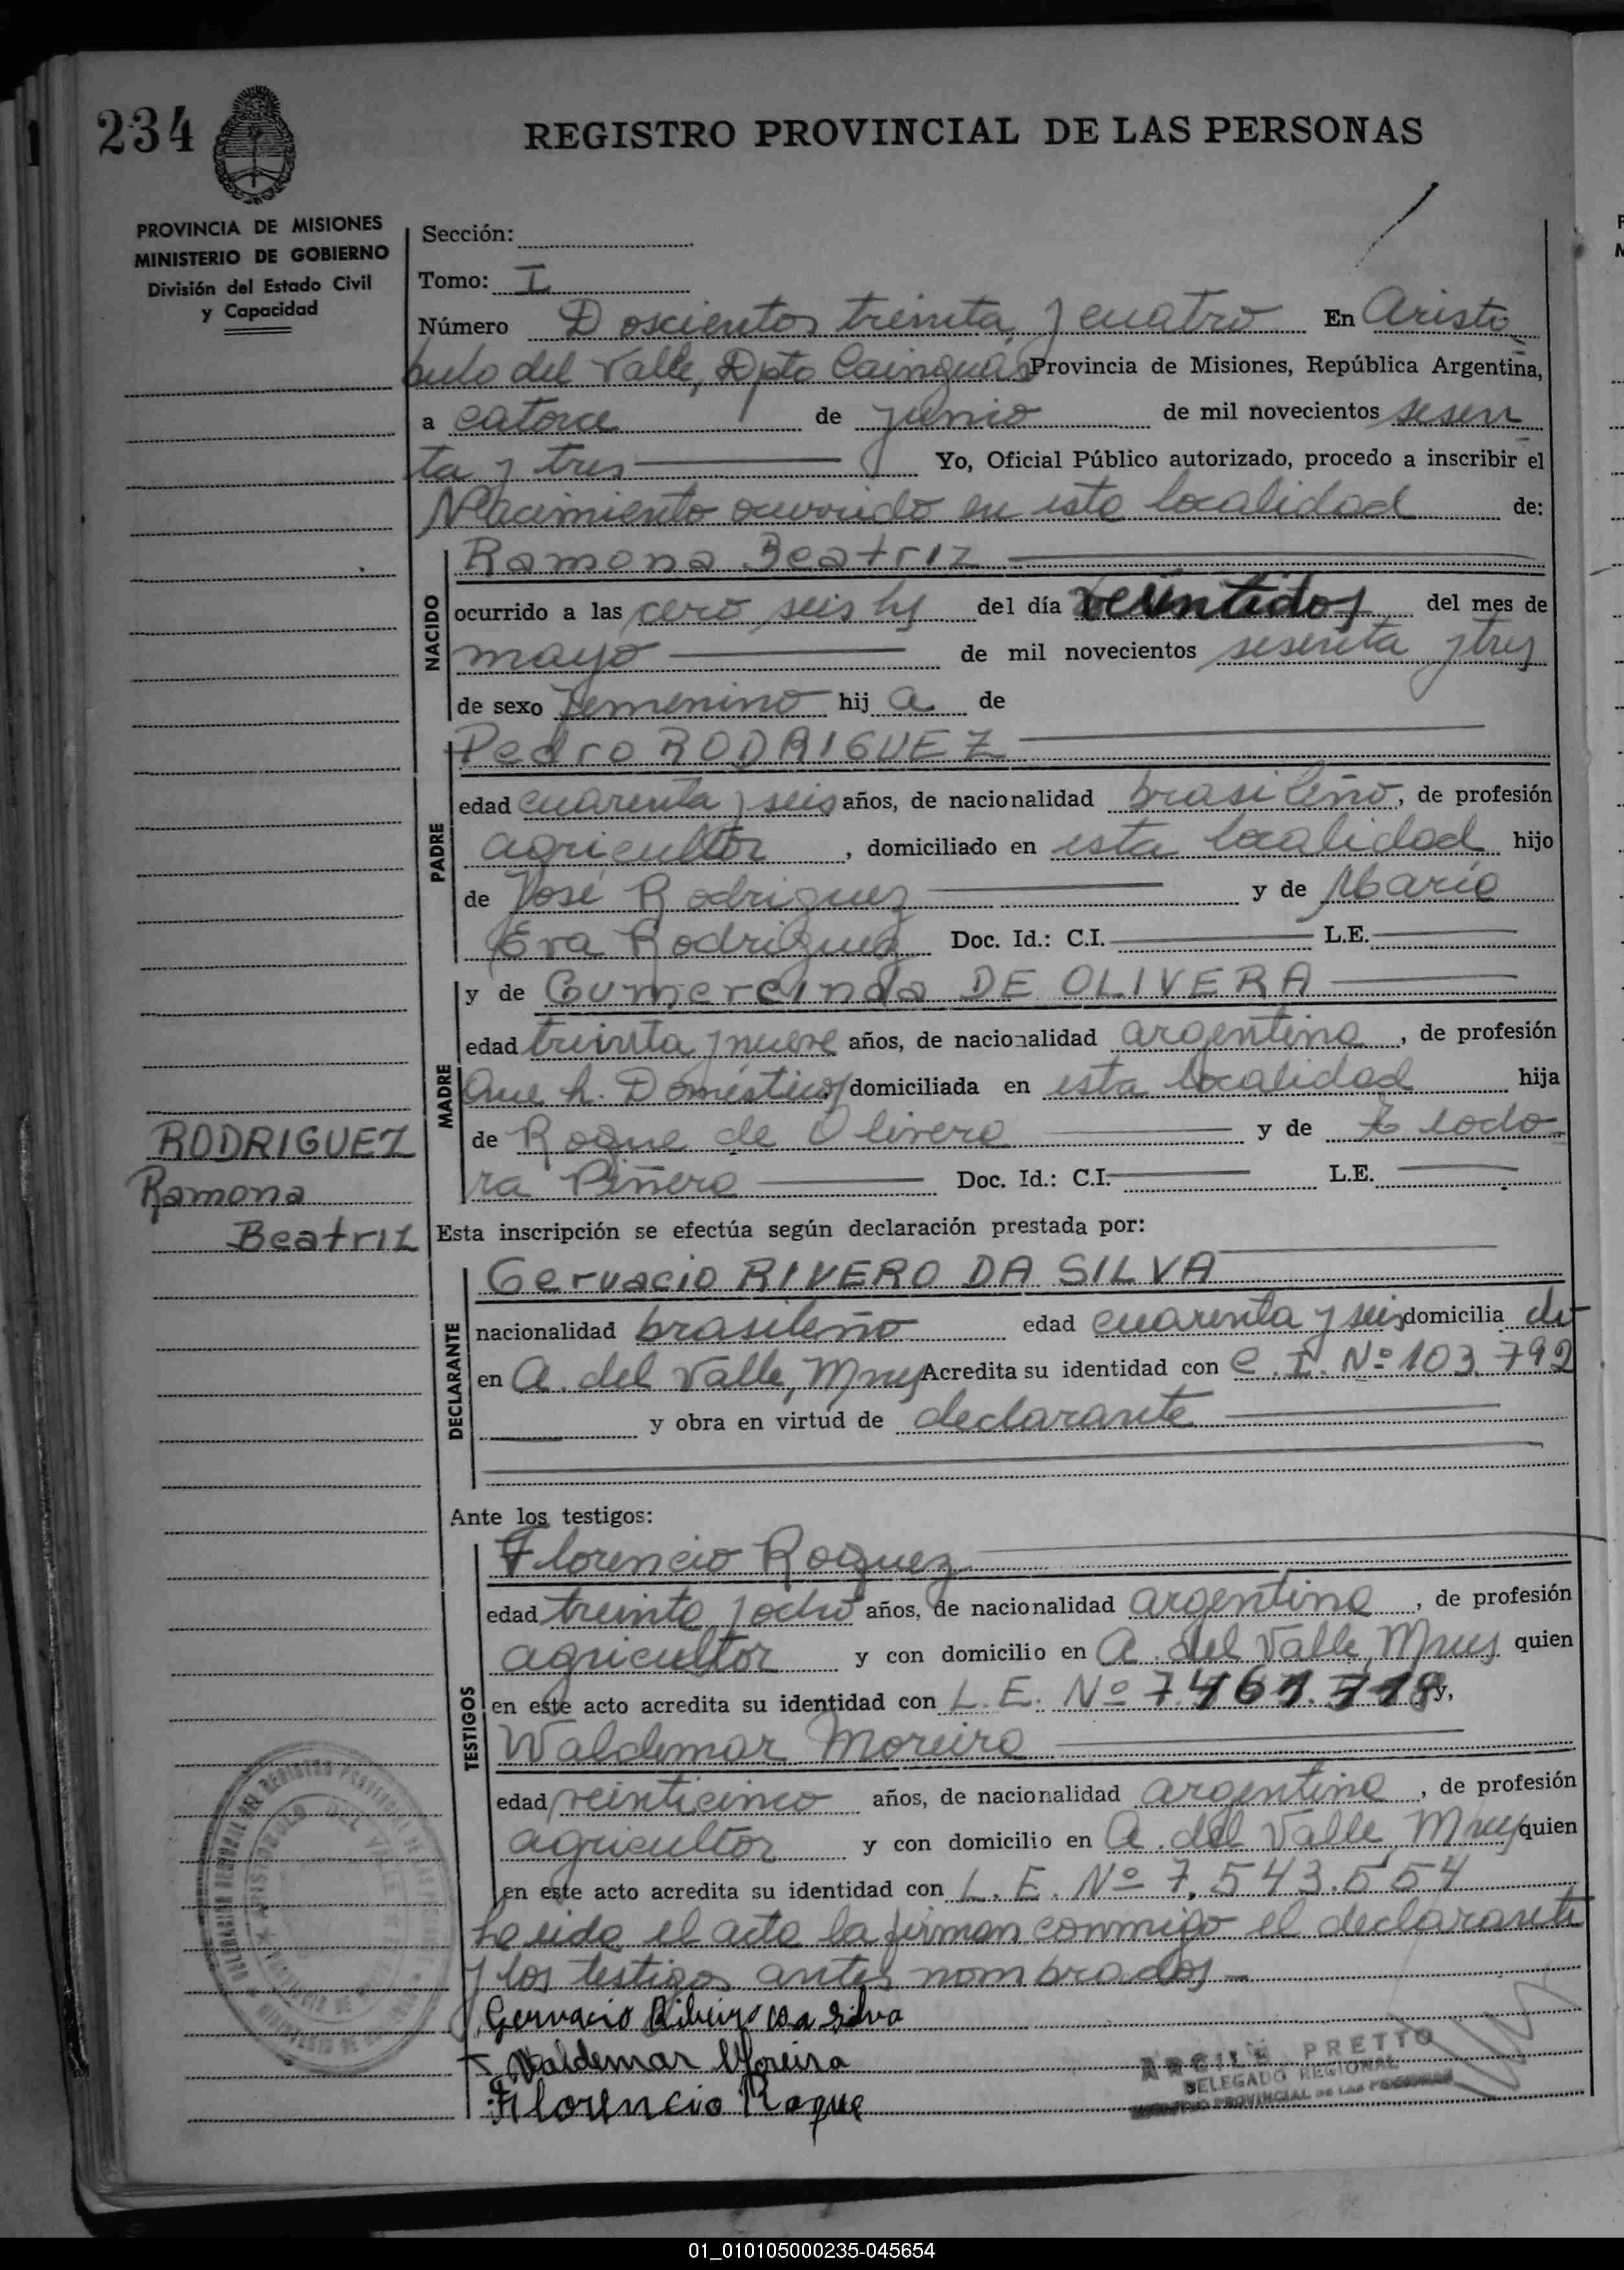 234
REGISTRO PROVINCIAL DE LAS PERSONAS
PROVINCIA DE MISIONES
MINISTERIO DE GOBIERNO
División del Estado Civil
y Capacidad
Sección:
Tomo: I
Número Doscientos treinta y cuatro En Aristó
bulo del Valle, Dpto Cainguás Provincia de Misiones, República Argentina,
a catorce de junio de mil novecientos sesen
ta y tres Yo, Oficial Público autorizado, procedo a inscribir el
Nacimiento ocurrido en esta localidad de:
NACIDO
Ramona Beatriz
ocurrido a las cero seis hs del día veintidos del mes de
mayo de mil novecientos sesenta y tres
de sexo Femenino hij a de
PADRE
Pedro RODRIGUEZ
edad cuarenta y seis años, de nacionalidad brasileño, de profesión
agricultor, domiciliado en esta localidad hijo
de José Rodriguez y de María
Eva Rodriguez Doc. Id.: C.I. L.E.
MADRE
y de Gumercinda DE OLIVERA
edad treinta y nueve años, de nacionalidad argentina, de profesión
Que h. Domésticos domiciliada en esta localidad hija
de Roque de Olivera y de Elodo
ra Piñero Doc. Id.: C.I. L.E.
RODRIGUEZ
Ramona
Beatriz
Esta inscripción se efectúa según declaración prestada por:
DECLARANTE
Gervacio RIVERO DA SILVA
nacionalidad brasileño edad cuarenta y seis domicilia do
en A. del Valle, Mnes Acredita su identidad con C. I. Nº 103.792
y obra en virtud de declarante
Ante los testigos:
TESTIGOS
Florencio Roquez
edad treinta y ocho años, de nacionalidad argentina, de profesión
agricultor y con domicilio en A. del Valle, Mnes quien
en este acto acredita su identidad con L. E. Nº 7.461.718 y,
Waldemar Moreira
edad veinticinco años, de nacionalidad argentina, de profesión
agricultor y con domicilio en A. del Valle, Mnes quien
en este acto acredita su identidad con L. E. Nº 7.543.554
Leída el acta la firman conmigo el declarante
y los testigos antes nombrados.-
Gervacio Ribeiro da Silva
Valdemar Moreira
Florencio Roque
ARGILE PRETTO
DELEGADO REGIONAL
REGISTRO PROVINCIAL DE LAS PERSONAS
01_010105000235-045654